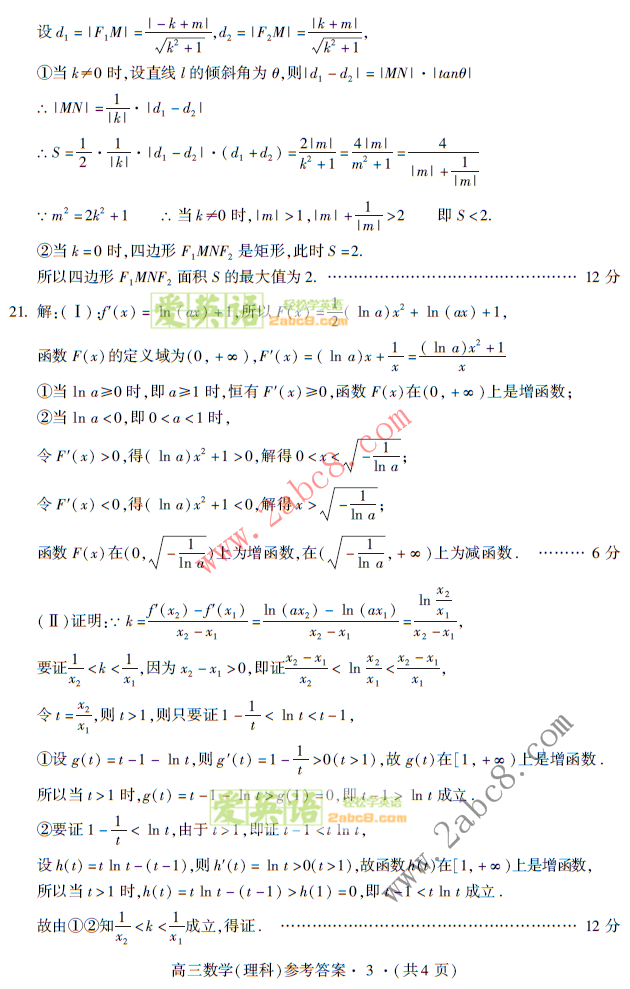 设 d₁ = |F₁M| = |-k+m|/√(k²+1), d₂ = |F₂M| = |k+m|/√(k²+1),
①当 k≠0 时,设直线 l 的倾斜角为 θ,则|d₁-d₂| = |MN|·|tanθ|
∴ |MN| = 1/|k| · |d₁-d₂|
∴ S = 1/2 · 1/|k| · |d₁-d₂| · (d₁+d₂) = 2|m|/(k²+1) = 4|m|/(m²+1) = 4/(|m|+1/|m|)
∵ m² = 2k²+1 ∴ 当 k≠0 时,|m|>1,|m|+1/|m|>2 即 S<2.
②当 k=0 时,四边形 F₁MNF₂ 是矩形,此时 S=2.
所以四边形 F₁MNF₂ 面积 S 的最大值为 2. ………………………………………… 12 分
21. 解:(Ⅰ):f′(x) = ln(ax)+1,所以 F(x) = 1/2(ln a)x² + ln(ax)+1,
函数 F(x)的定义域为(0,+∞),F′(x) = (ln a)x + 1/x = ((ln a)x²+1)/x
①当 ln a≥0 时,即 a≥1 时,恒有 F′(x)≥0,函数 F(x)在(0,+∞)上是增函数;
②当 ln a<0,即 0<a<1 时,
令 F′(x)>0,得(ln a)x²+1>0,解得 0<x<√(-1/ln a);
令 F′(x)<0,得(ln a)x²+1<0,解得 x>√(-1/ln a);
函数 F(x)在(0,√(-1/ln a))上为增函数,在(√(-1/ln a),+∞)上为减函数. ……… 6 分
(Ⅱ)证明:∵ k = (f′(x₂)-f′(x₁))/(x₂-x₁) = (ln(ax₂)-ln(ax₁))/(x₂-x₁) = (ln x₂/x₁)/(x₂-x₁),
要证 1/x₂<k<1/x₁,因为 x₂-x₁>0,即证 (x₂-x₁)/x₂ < ln x₂/x₁ < (x₂-x₁)/x₁,
令 t = x₂/x₁,则 t>1,则只要证 1-1/t < ln t < t-1,
①设 g(t) = t-1-ln t,则 g′(t) = 1-1/t>0(t>1),故 g(t)在[1,+∞)上是增函数.
所以当 t>1 时,g(t) = t-1-ln t>g(1)=0,即 t-1>ln t 成立.
②要证 1-1/t < ln t,由于 t>1,即证 t-1<t ln t,
设 h(t) = t ln t-(t-1),则 h′(t) = ln t>0(t>1),故函数 h(t)在[1,+∞)上是增函数,
所以当 t>1 时,h(t) = t ln t-(t-1)>h(1)=0,即 t-1<t ln t 成立.
故由①②知 1/x₂<k<1/x₁ 成立,得证. ………………………………………………… 12 分
高三数学(理科)参考答案·3·(共4页)
爱英语 轻松学英语 2abc8.com
www.2abc8.com
爱英语 轻松学英语 2abc8.com
www.2abc8.com